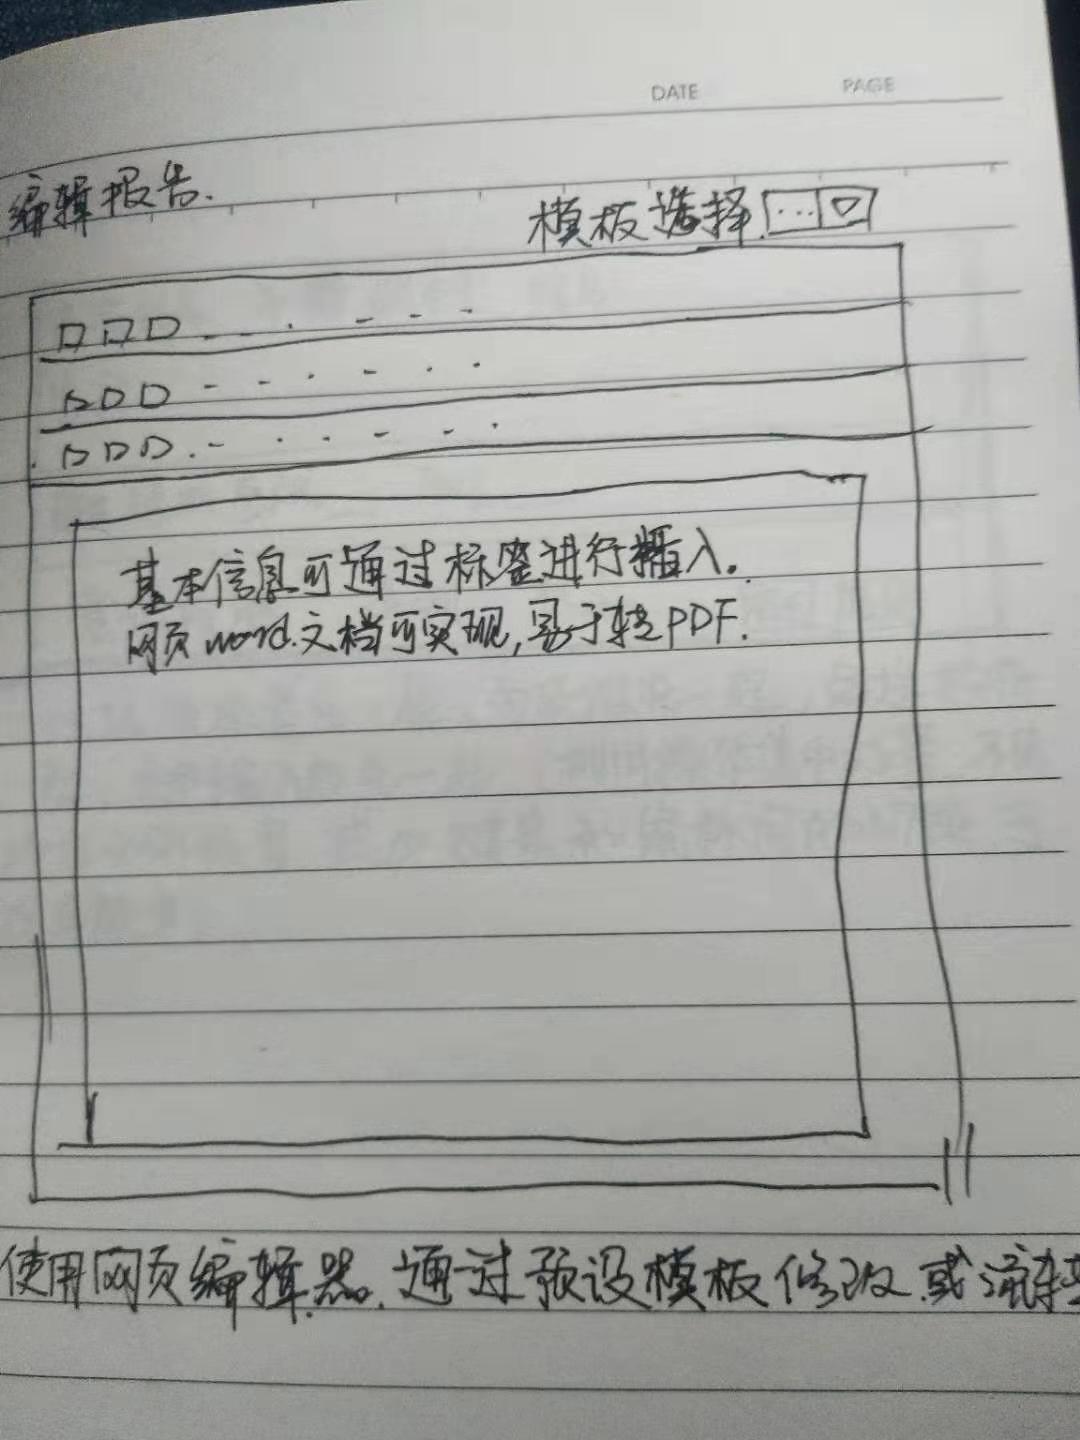 DATE PAGE
编辑报告.
模板选择 ...
基本信息可通过标签进行插入.
网页word文档可实现,易于转PDF.
使用网页编辑器.通过预设模板修改或流转